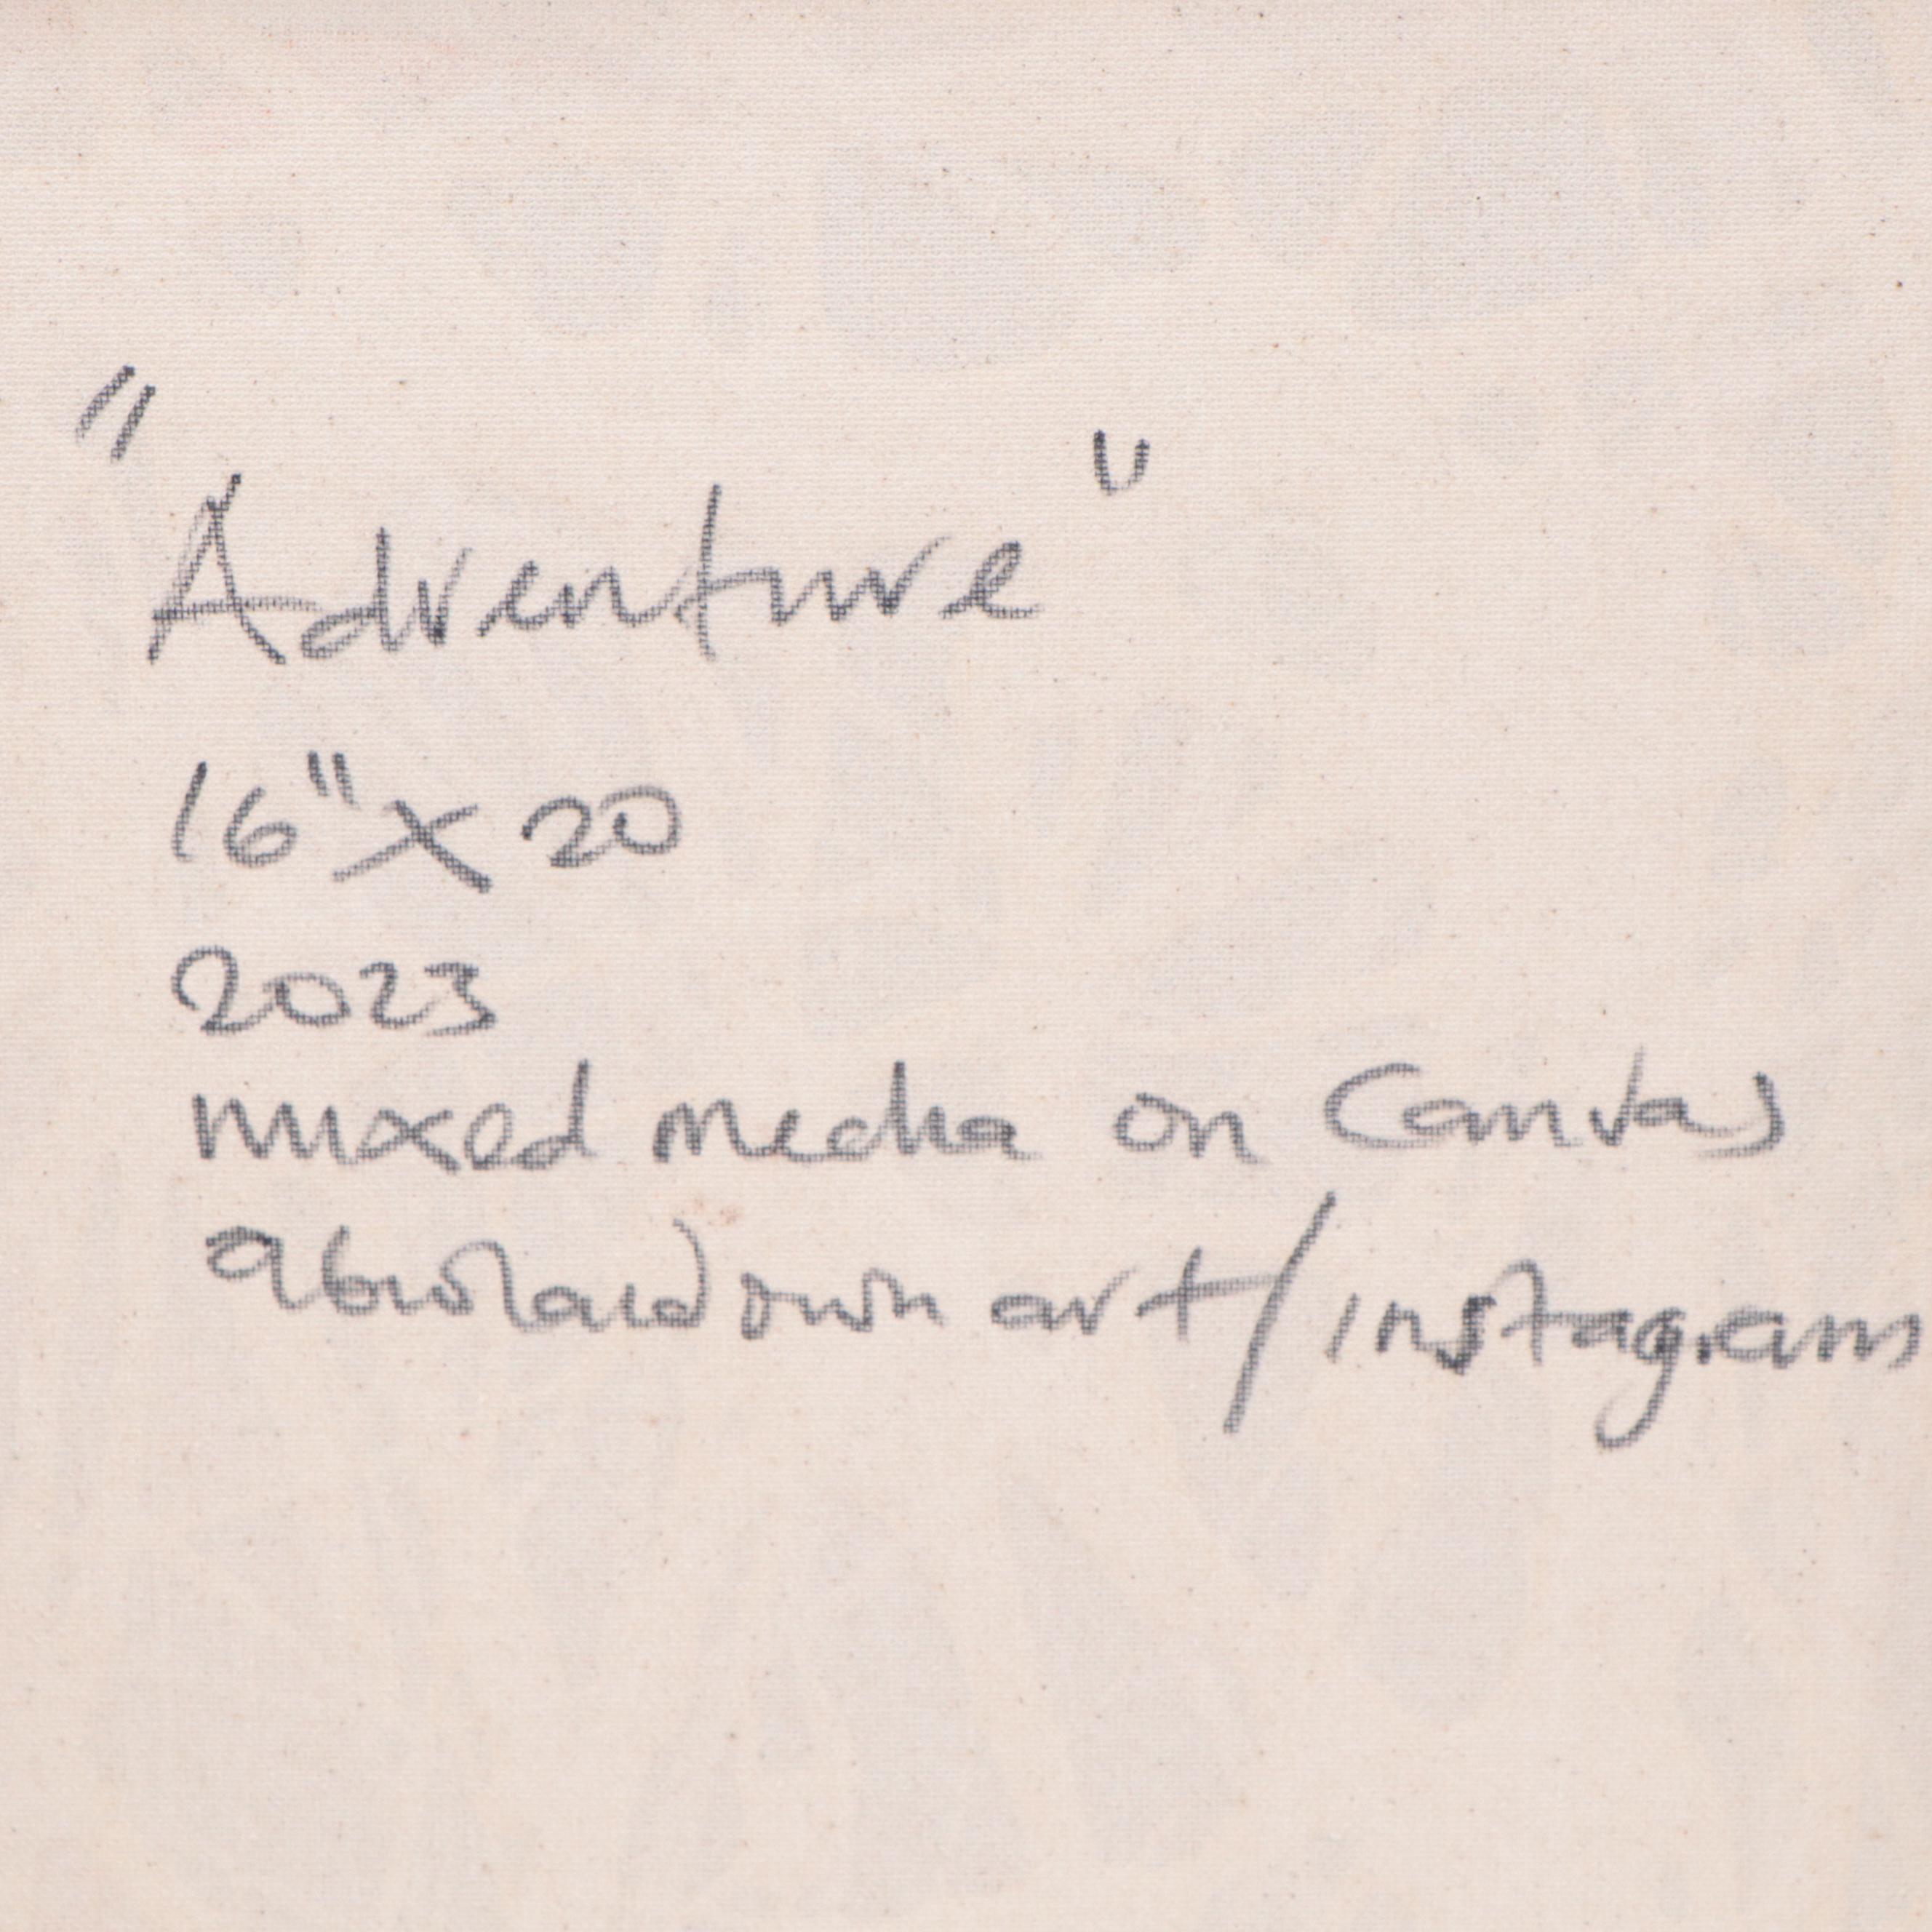 "Adventure"
16" x 20
2023
mixed media on Canvas
art/instagram